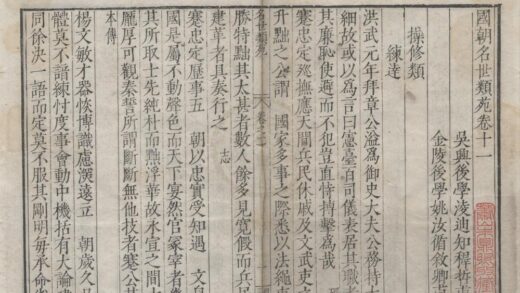 國朝名世類苑卷十一
吳興後學淩迪知稺哲
金陵後學姚汝循敘卿
操修類
練達
洪武元年拜章公溢爲御史大夫公務持大
細故或以爲言曰憲臺百司儀表居其職者
其廉恥使避而不犯豈直恃搏擊爲哉
蹇忠定巡撫應天問兵民休戚及文武吏
升黜之公謂 國家多事之際悉以法繩
勝特黜其太甚者數人餘多見寛假而兵民
建革者具奏行之 志
名世類苑
蹇忠定歷事五 朝以忠實受知遇 文皇
國是屬不動聲色而天下宴然官冢宰者
其所取士先純朴而黜浮華故永宣之間士
龐厚可觀秦誓所謂斷斷無他技者蹇公其
本傳
楊文敏才器恢博識慮深遠立 朝歲久凡
體莫不諳練忖度事會動中機括有大論
同徐決一語而定莫不服其剛明毋承命